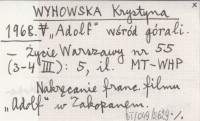 WYHOWSKA Krystyna
1968. „Adolf" wśród górali.
– Życie Warszawy nr 55
(3-4 III): 5, il. MT-WHP
Nakręcanie franc. filmu
„Adolf" w Zakopanem.